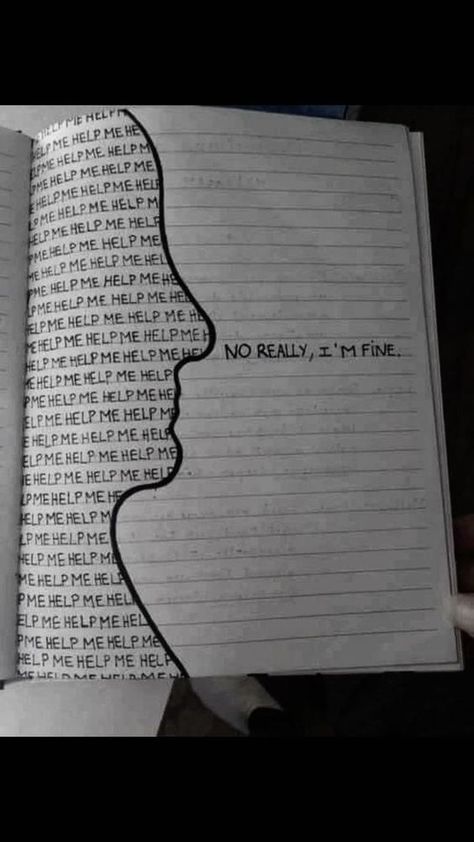 HELP ME HELP M
ELP ME HELP ME HE
ELP ME HELP ME HELP M
ME HELP ME HELP ME
HELP ME HELP ME HELP
P ME HELP ME HELP M
ELP ME HELP ME HELP
ME HELP ME HELP ME
ME HELP ME HELP ME HELP
P ME HELP ME HELP ME HE
LP ME HELP ME HELP ME HEL
ELP ME HELP ME HELP ME HE
ME HELP ME HELP ME HELP ME H
HELP ME HELP ME HELP ME HEL NO REALLY, I'M FINE.
ME HELP ME HELP ME HELP
P ME HELP ME HELP ME HE
ELP ME HELP ME HELP ME
E HELP ME HELP ME HELP
ELP ME HELP ME HELP ME
E HELP ME HELP ME HELP
LP ME HELP ME HE
ELP ME HELP M
LP ME HELP ME
HELP ME HELP ME
ME HELP ME HEL
P ME HELP ME HEL
ELP ME HELP ME HEL
P ME HELP ME HELP ME
HELP ME HELP ME HELP
ME HELP ME HELP ME H